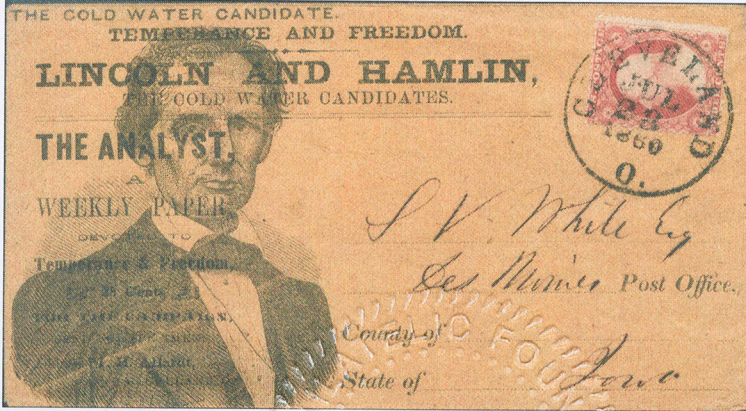 THE COLD WATER CANDIDATE.
TEMPERANCE AND FREEDOM.
LINCOLN AND HAMLIN,
THE COLD WATER CANDIDATES.
THE ANALYST,
A
WEEKLY PAPER,
DEVOTED TO
Temperance & Freedom,
25 Cents
FOR THE CAMPAIGN,
CLEVELAND
JUL
23
1860
O.
S V. White Esq
Des Moines Post Office.
County of
State of Iowa